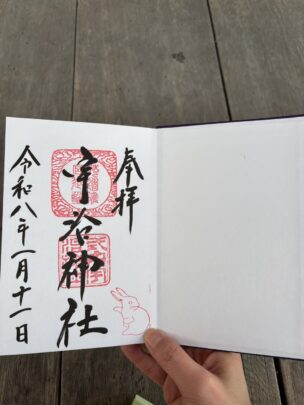 奉拝
宇治神社
令和八年一月十一日